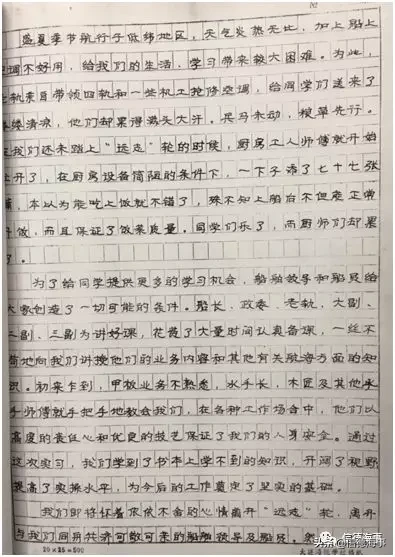 盛夏季节航行于低纬地区，天气炎热无比，加上船上
空调不好用，给我们的生活、学习带来较大困难。为此，
老轨亲自带领四轨和一些机工抢修空调，给同学们送来了
缕缕清凉，他们却累得满头大汗。兵马未动，粮草先行。
在我们还未踏上“远志”轮的时候，厨房工人师傅就开始
忙开了，在厨房设备简陋的条件下，一下子添了七十七张
嘴，本以为能吃上做就不错了，殊不知上船后不但能正常
开饭，而且保证了饭菜质量。同学们乐了，而厨师们却累
了。
为了给同学提供更多的学习机会，船舶领导和船员给
大家创造了一切可能的条件。船长、政委、老轨，大副、
二副、三副为讲好课，花费了大量时间认真备课，一丝不
苟地向我们讲授他们的业务内容和其他有关航海方面的知
识。初来乍到，甲板业务不熟悉，水手长、木匠及其他水
手师傅就手把手地教会我们，在各种工作场合中，他们以
高度的责任心和优良的技艺保证了我们的人身安全。通过
这次实习，我们学到了书本上学不到的知识，开阔了视野
提高了实操水平，为今后的工作奠定了坚实的基础。
我们即将怀着依依不舍的心情离开“远志”轮，离开
与我们同舟共济可敬可亲的船舶领导及船员。
20×25=500
信德海事